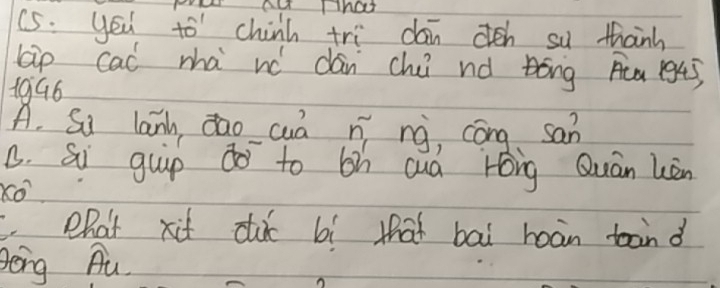 Nhật
C5. Yếu tố chính trị dẫn đến sự thành
lập các nhà nc dân chủ nd Đông Âu 1945,
1946
A. Sự lãnh đạo của ~ ng, cộng sản
B. Sự giúp đỡ to lớn của Hồng Quân Liên
xô
C. Phát xít đức bị thất bại hoàn toàn ở
Đông Âu.